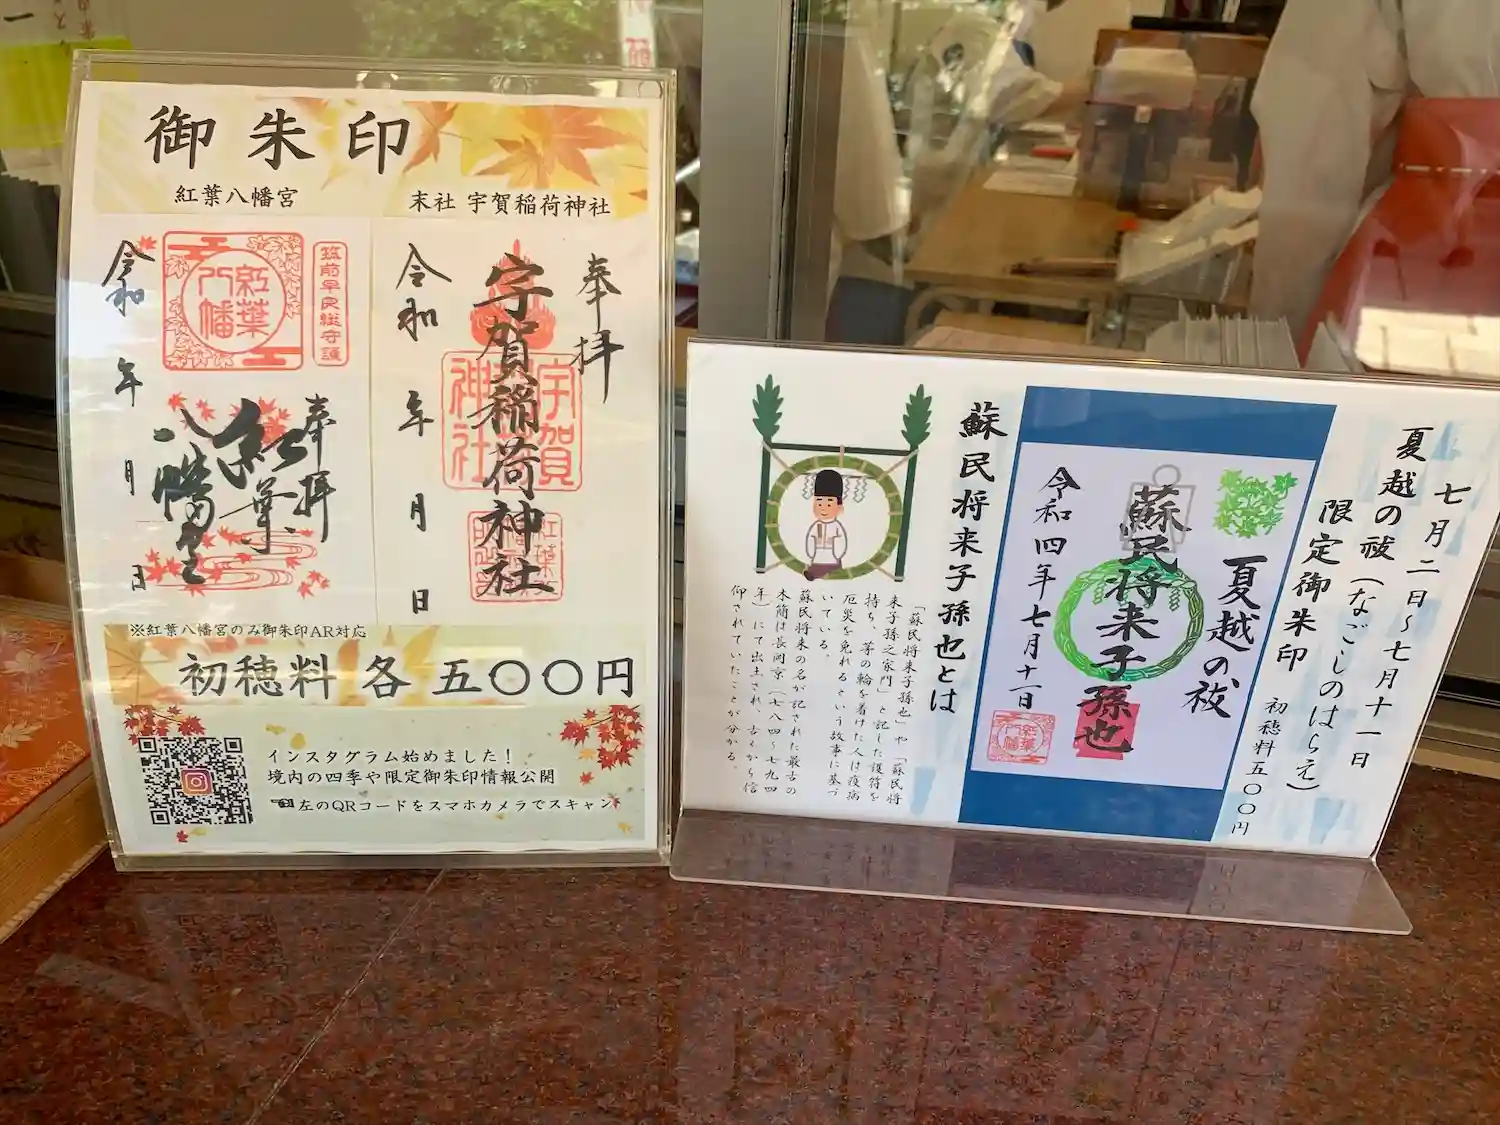 御朱印
紅葉八幡宮
末社 宇賀稲荷神社
令和 年 月 日
紅葉八幡
筑前早良総守護
奉拝
紅葉
八幡宮
奉拝
宇賀稲荷神社
令和 年 月 日
※紅葉八幡宮のみ御朱印AR対応
初穂料 各 五〇〇円
インスタグラム始めました!
境内の四季や限定御朱印情報公開
左のQRコードをスマホカメラでスキャン
七月二日~七月十一日
夏越の祓(なごしのはらえ)
限定御朱印
初穂料五〇〇円
夏越の祓
蘇民将来子孫也
令和四年七月十一日
紅葉八幡
蘇民将来子孫也とは
「蘇民将来子孫也」や「蘇民将
来子孫之家門」と記した護符を
持ち、茅の輪を着けた人は疫病
厄災を免れるという故事に基づ
いている。
蘇民将来の名が記された最古の
木簡は長岡京(七八四~七九四
年)にて出土され、古くから信
仰されていたことが分かる。